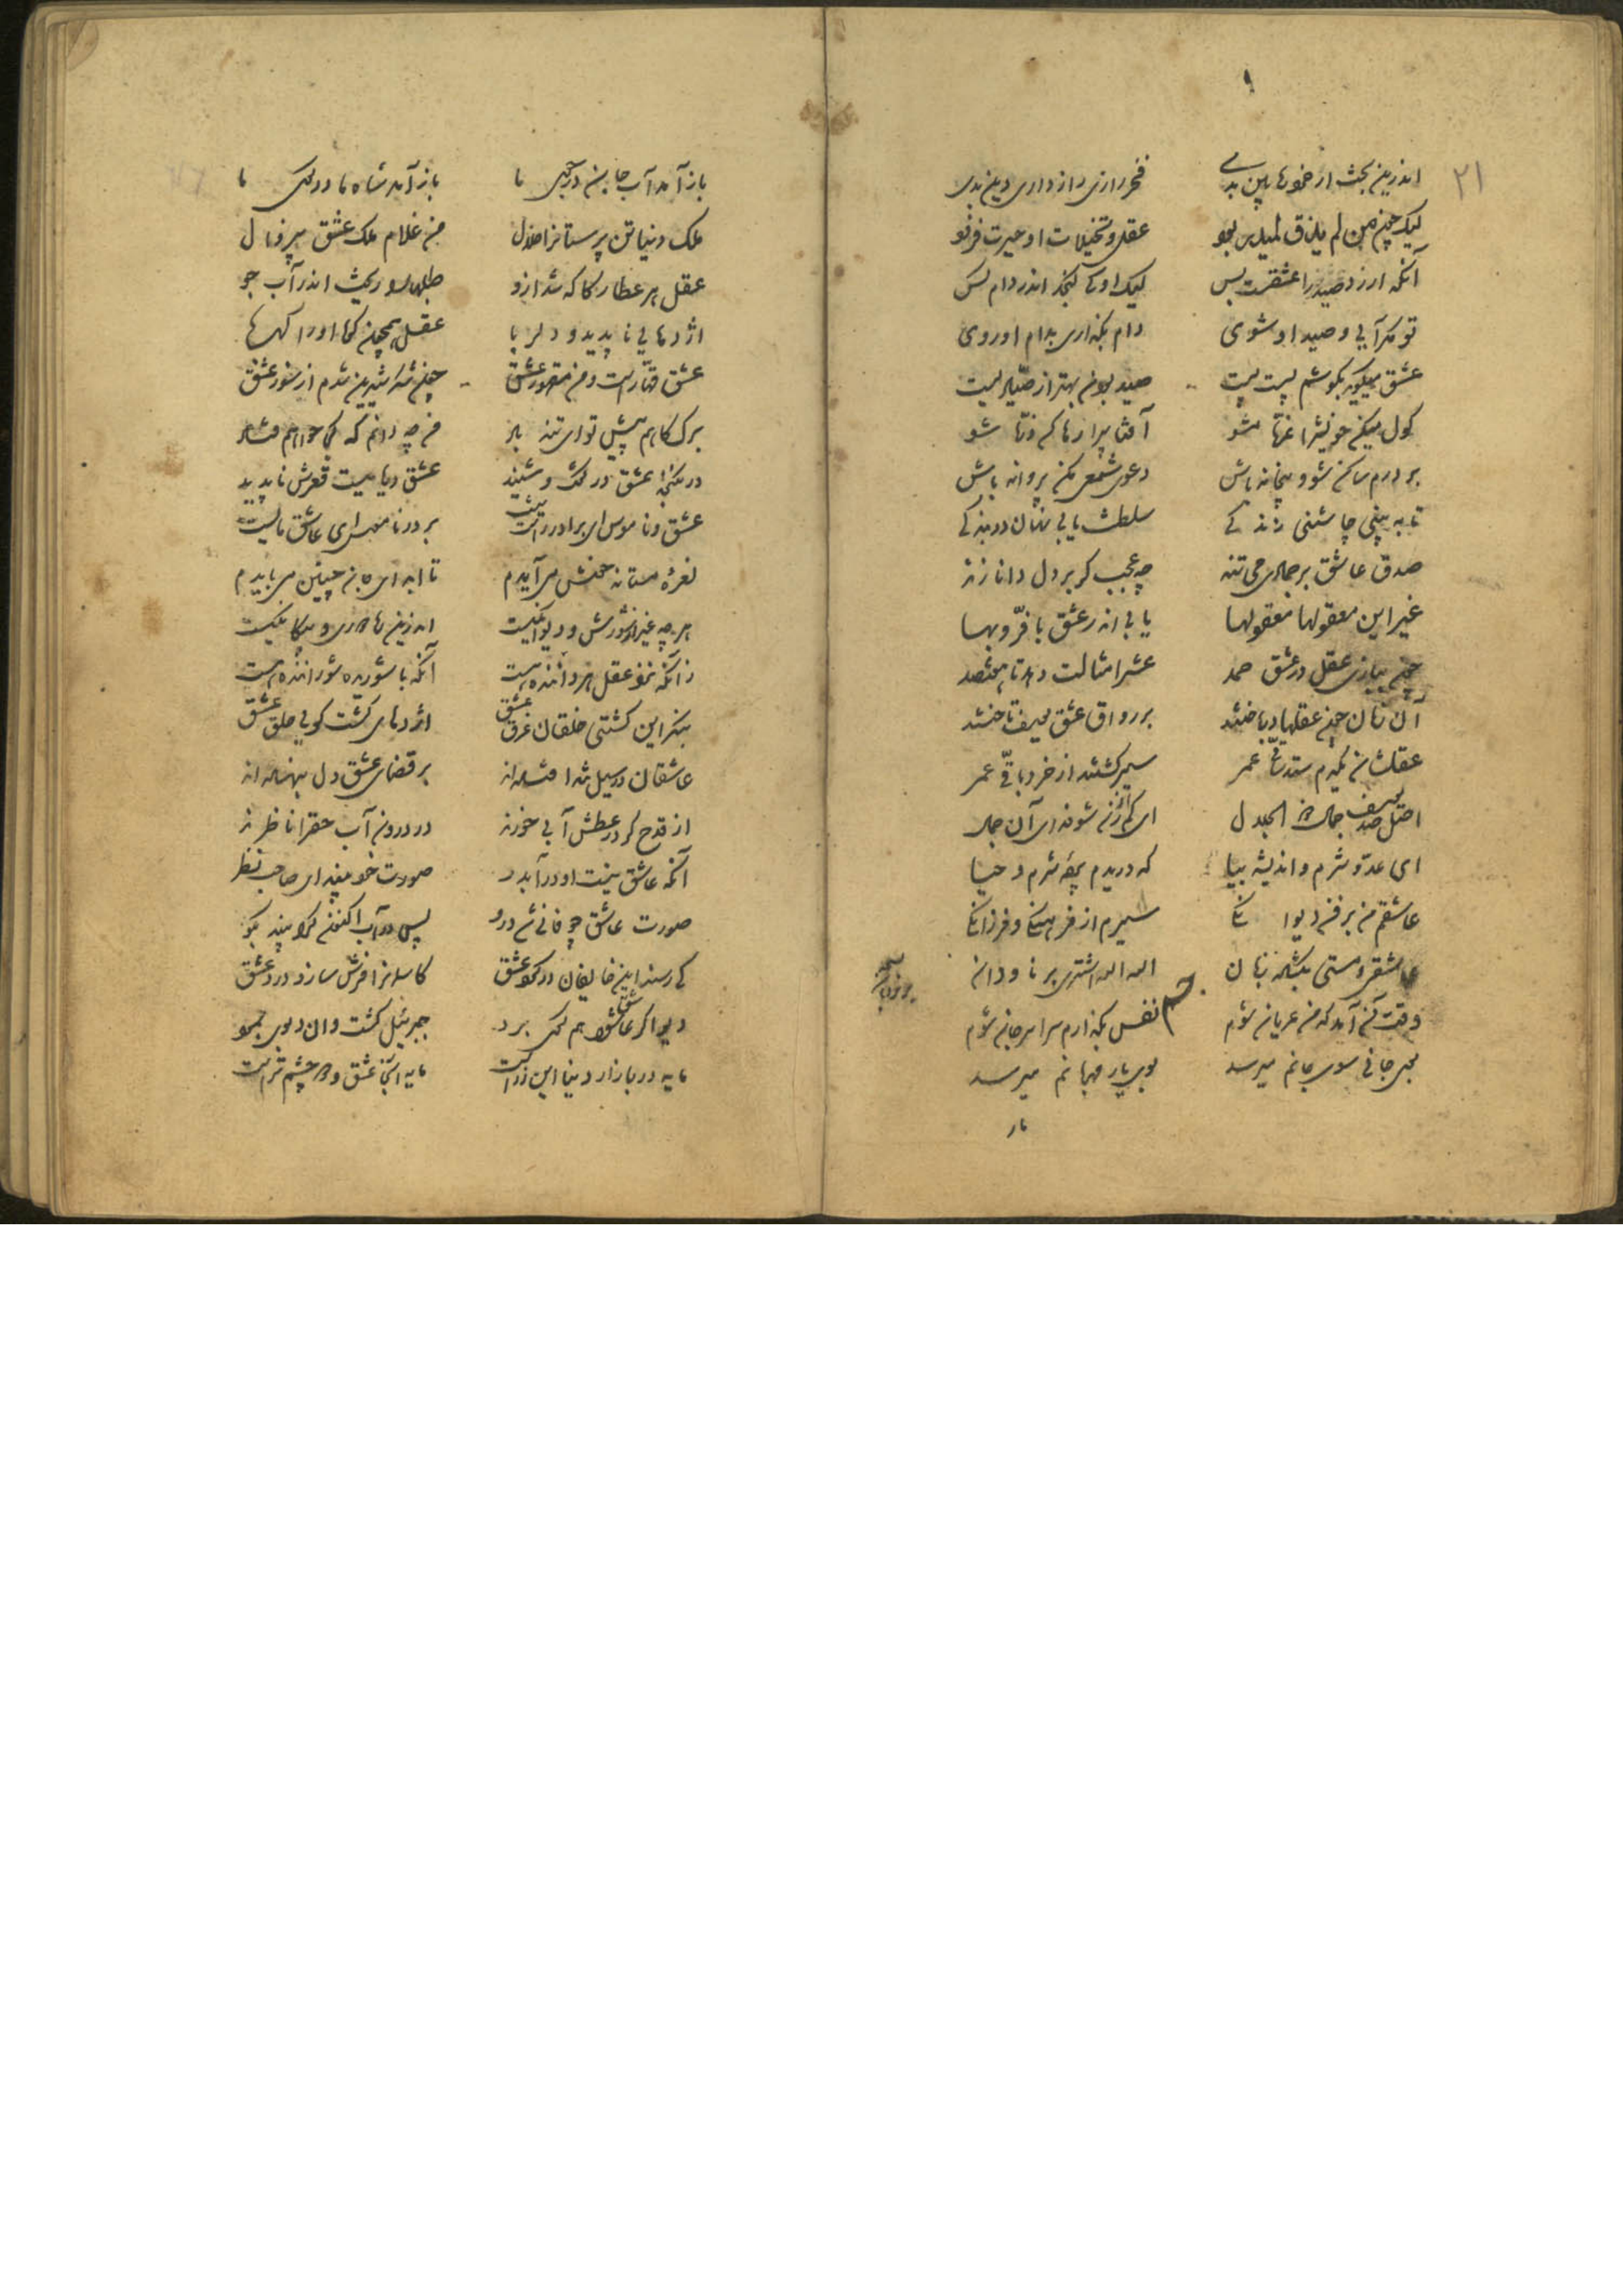 ۲۱
اندرین بحث ار خرد ره بین بدی فخر رازی رازداری دین بدی
لیک چون من لم یذق لم یدر بود عقل و تخییلات او حیرت فزود
آنکه ارزد صید را عشقست و بس لیک او کی گنجد اندر دام کس
تو مگر آیی و صید او شوی دام بگذاری بدام او روی
عشق میگوید بگوشم پست پست صید بودن بهتر از صیادیست
گول میکن خویش را غره مشو آفتابی را رها کن ذره شو
بر درم ساکن شو و بیخانه باش دعوی شمعی مکن پروانه باش
تا به بینی چاشنی زندگی سلطنت یابی نهان در بندگی
صدق عاشق بر جمادی می تند چه عجب گر بر دل دانا زند
غیر این معقولها معقولها یابی اندر عشق با فر و بها
چون ببازی عقل در عشق صمد عشر امثالت دهد تا هفتصد
آن زنان چون عقلها درباختند بر رواق عشق یوسف تاختند
عقلشان یکدم ستد ساقی عمر سیر گشتند از خرد باقی عمر
اصل صد یوسف جمال ذو الجلال ای کم از زن شو فدای آن جمال
ای عدو شرم و اندیشه بیا که دریدم پرده شرم و حیا
عاشقم من بر فن دیوانگی سیرم از فرهنگ و فرزانگی
عاشقی و مستی بگشاده زبان الله الله اشتری بر ناودان
وقت آن آمد که من عریان شوم جسم نقش بگذارم سراسر جان شوم
بوی جانی سوی جانم میرسد بوی یار مهربانم میرسد
باز
باز آمد آب جان در جوی ما باز آمد شاه ما در کوی ما
ملک دنیا تن پرستانرا حلال من غلام ملک عشق بیزوال
عقل هر عطار کاگه شد ازو طبلها را ریخت اندر آب جو
اژدهایی ناپدید و دلربا عقل همچون کوه را او کهربا
عشق قهارست و من مقهور عشق چون شکر شیرین شدم از شور عشق
برگ کاهم پیش تو ای تند باد من چه دانم که کجا خواهم فتاد
در نگنجد عشق در گفت و شنید عشق دریاییست قعرش ناپدید
عشق و ناموس ای برادر راست نیست بر در ناموس ای عاشق مایست
نعره مستانه خوش می آیدم تا ابد ای جان چنین می بایدم
هرچه غیر از شورش و دیوانگیست اندرین ره دوری و بیگانگیست
زآنکه نغز عقل هر داننده هست آنکه با شوریده شوراننده هست
بنگر این کشتی خلقان غرق عشق اژدهایی گشت گویی حلق عشق
عاشقان در سیل تند افتاده اند بر قضای عشق دل بنهاده اند
از قدح گر در عطش آبی خورند در درون آب حق را ناظرند
آنکه عاشق نیست او در آب در صورت خود بیند ای صاحب نظر
صورت عاشق چو فانی شد درو پس در آب اکنون کرا بیند بگو
کی رسند این خایفان در گرد عشق کاسمان را فرش سازد درد عشق
دیو اگر عاشق شود هم گوی برد جبرئیل گشت و آن دیوی بمرد
مایه در بازار دنیا این زر است مایه آنجا عشق و دو چشم تر است